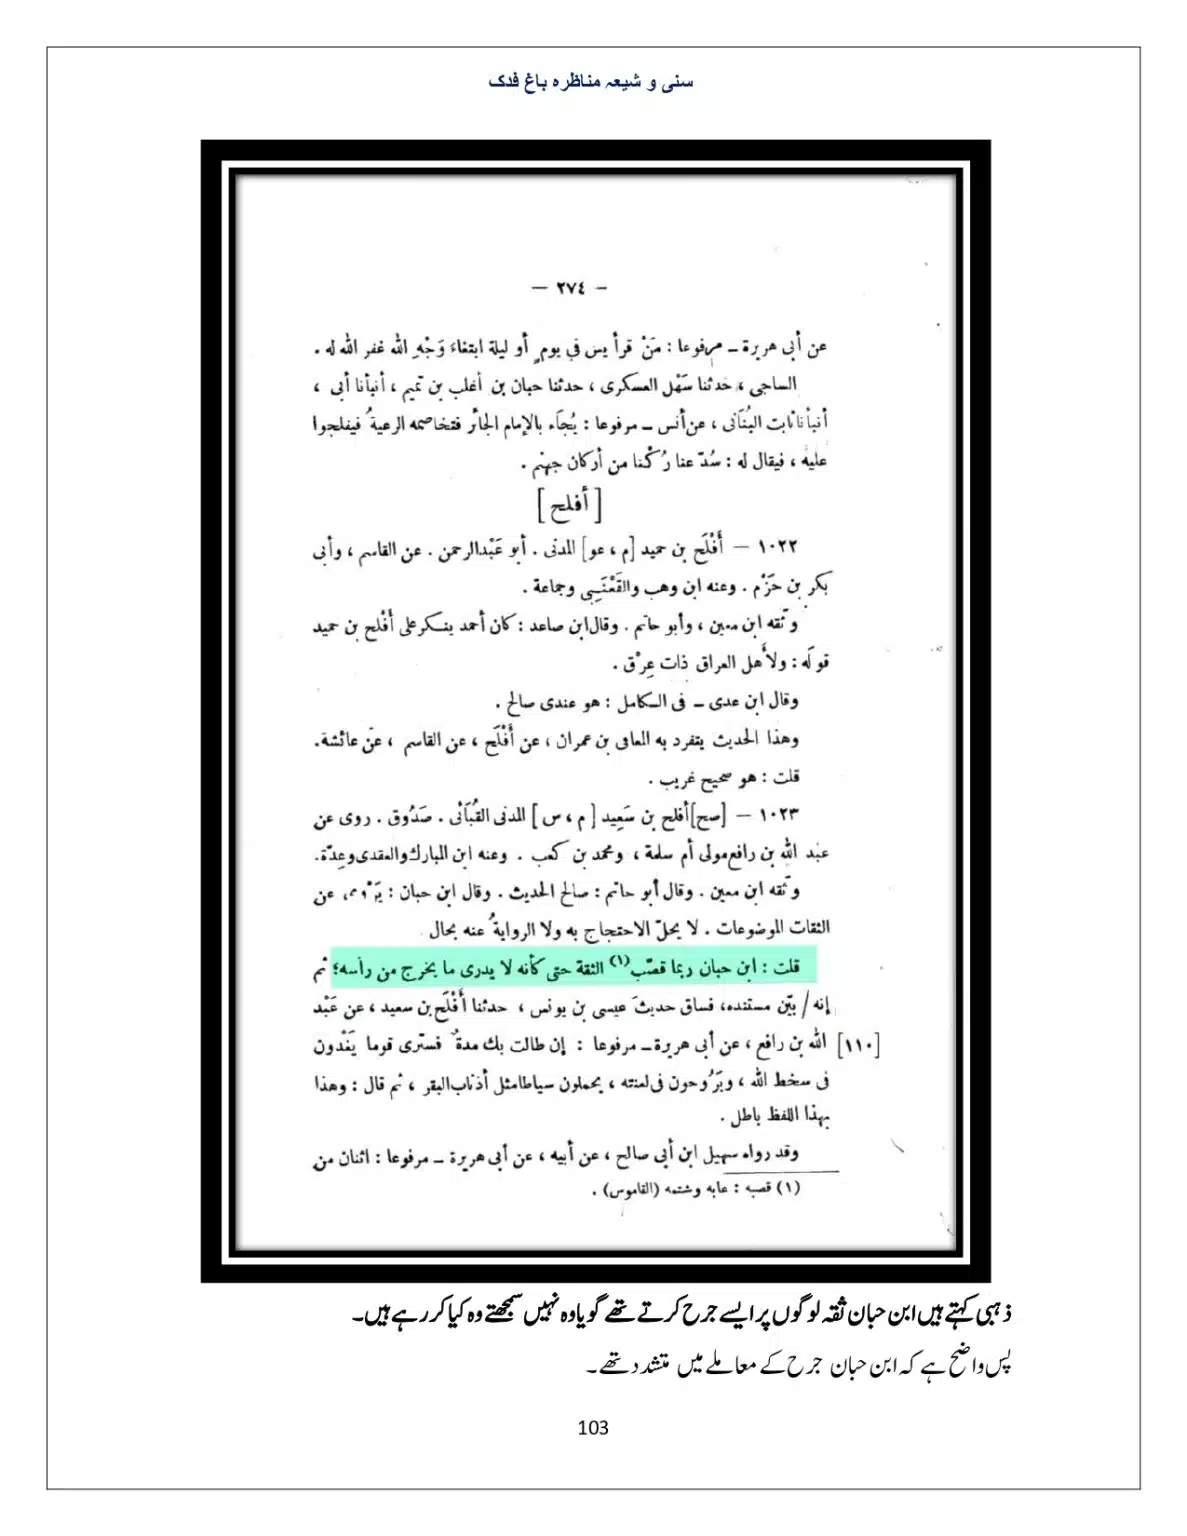 سنی و شیعہ مناظرہ باغ فدک
— ٢٧٤ —
عن أبى هريرة ــ مرفوعا : مَنْ قرأ يس في يومٍ أو ليلة ابتغاءَ وَجْهِ الله غفر الله له .
الساجى ، حدثنا سَهْل العسكرى ، حدثنا حبان بن أغلب بن تميم ، أنبأنا أبى ،
أنبأنا ثابت البُنَانى ، عن أنس ــ مرفوعا : يُجَاء بالإمام الجائر فتخاصمه الرعيةُ فيفلجوا
عليه ، فيقال له : سُدّ عنا رُكْنا من أركان جهنم .
[ أفلح ]
١٠٢٢ — أَفْلَح بن حميد [م ، عو] المدنى . أبو عَبْدالرحمن . عن القاسم ، وأبى
بكر بن حَزْم . وعنه ابن وهب والقَعْنَبِى وجماعة .
وثّقه ابن معين ، وأبو حاتم . وقال ابن صاعد : كان أحمد ينكر على أَفْلح بن حميد
قوله : ولأهل العراق ذات عِرْق .
وقال ابن عدى ــ فى الكامل : هو عندى صالح .
وهذا الحديث يتفرد به المعافى بن عمران ، عن أَفْلَح ، عن القاسم ، عن عائشة.
قلت : هو صحيح غريب .
١٠٢٣ — [صح] أفلح بن سَعِيد [ م ، س ] المدنى القُبَائى . صَدُوق . روى عن
عبد الله بن رافع مولى أم سلمة ، ومحمد بن كعب . وعنه ابن المبارك والعقدى وعِدّة.
وثّقه ابن معين . وقال أبو حاتم : صالح الحديث . وقال ابن حبان : عن
الثقات الموضوعات . لا يحلّ الاحتجاج به ولا الروايةُ عنه بحال
قلت : ابن حبان ربما قصّب(١) الثقة حتى كأنه لا يدرى ما يخرج من رأسه؛ ثم
إنه / بيّن مستنده، فساق حديثَ عيسى بن يونس ، حدثنا أَفْلَح بن سعيد ، عن عَبْد
[١١٠] الله بن رافع ، عن أبى هريرة ــ مرفوعا : إن طالت بك مدةٌ فسترى قوما يَغْدون
فى سخط الله ، ويَرُوحون فى لعنته ، يحملون سياطا مثل أذناب البقر ، ثم قال : وهذا
بهذا اللفظ باطل .
وقد رواه سهيل ابن أبى صالح ، عن أبيه ، عن أبى هريرة ــ مرفوعا : اثنان من
(١) قصبه : عابه وشتمه (القاموس) .
ذہبی کہتے ہیں ابن حبان ثقہ لوگوں پر ایسے جرح کرتے تھے گویا وہ نہیں سمجھتے وہ کیا کر رہے ہیں۔
پس واضح ہے کہ ابن حبان جرح کے معاملے میں متشدد تھے۔
103